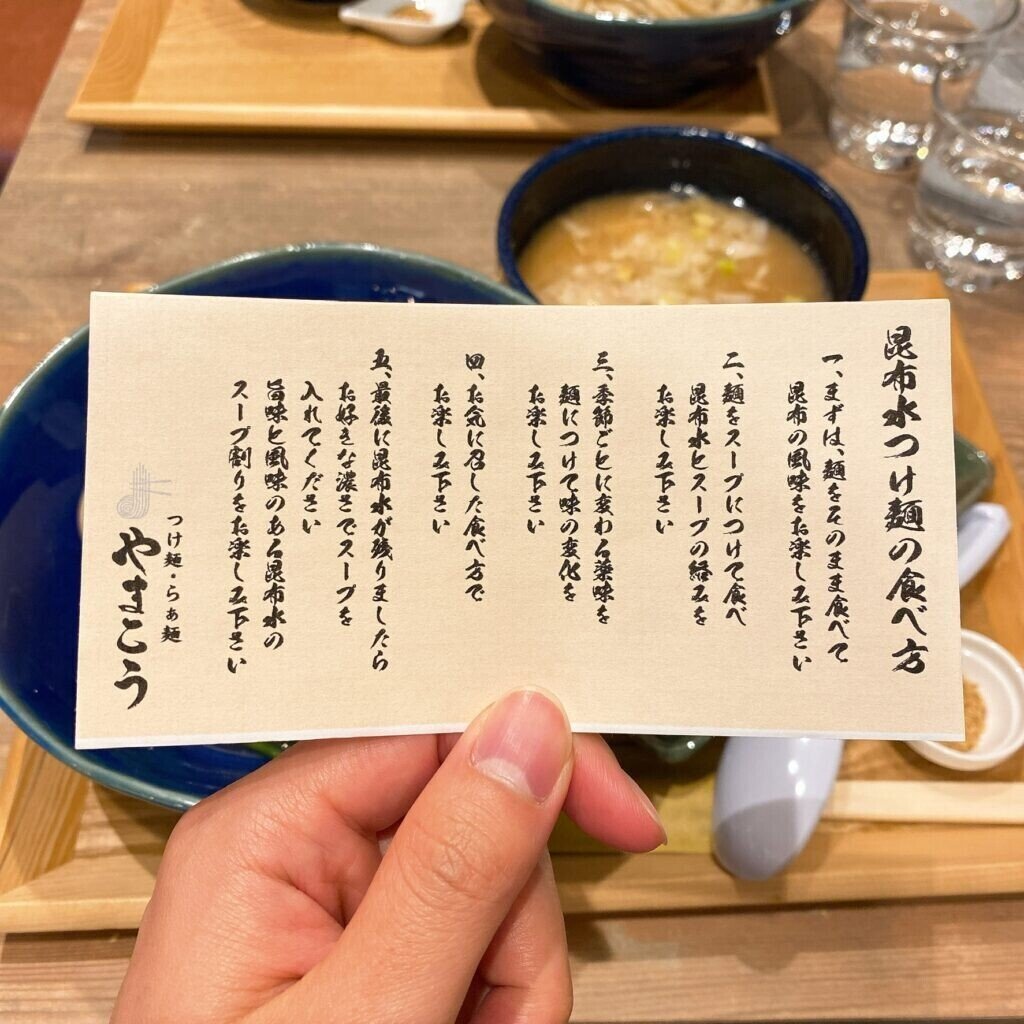 昆布水つけ麺の食べ方
一、まずは、麺をそのまま食べて
昆布の風味をお楽しみ下さい
二、麺をスープにつけて食べ
昆布水とスープの絡みを
お楽しみ下さい
三、季節ごとに変わる薬味を
麺につけて味の変化を
お楽しみ下さい
四、お気に召した食べ方で
お楽しみ下さい
五、最後に昆布水が残りましたら
お好きな濃さでスープを
入れてください
旨味と風味のある昆布水の
スープ割りをお楽しみ下さい
つけ麺・らぁ麺
やまこう